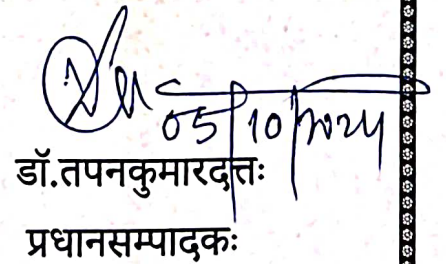 05/10/2024
डॉ.तपनकुमारदत्तः
प्रधानसम्पादकः